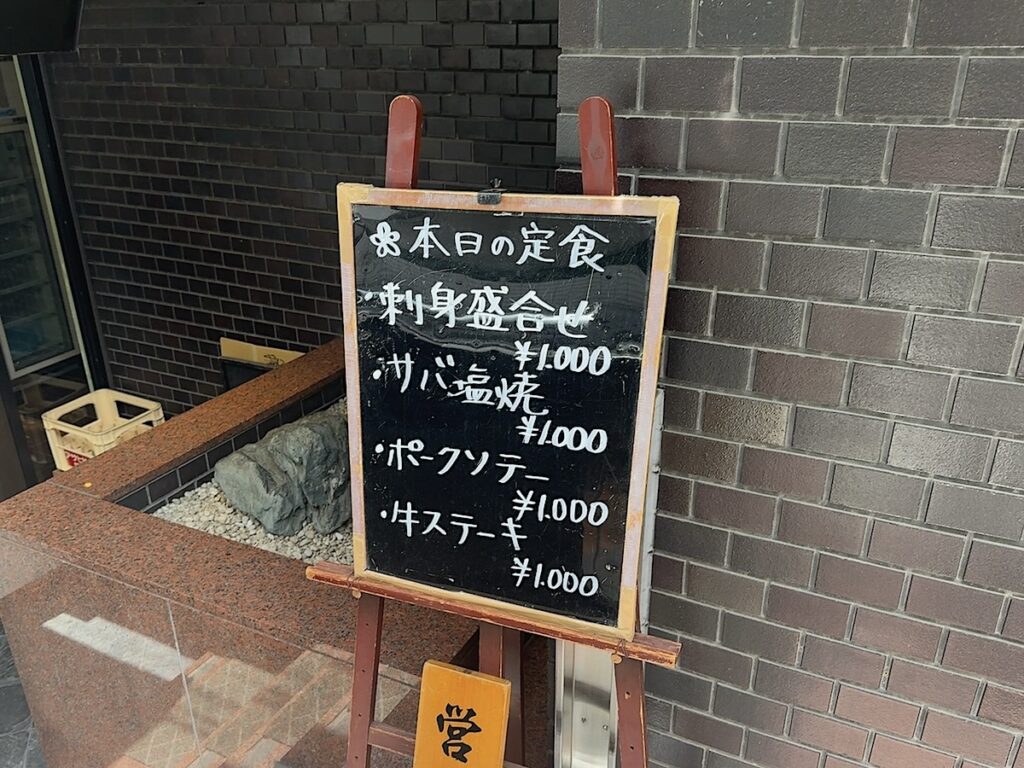 本日の定食
・刺身盛合せ
¥1.000
・サバ塩焼
¥1.000
・ポークソテー
¥1.000
・牛ステーキ
¥1.000
営